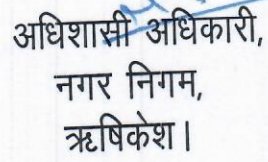 अधिशासी अधिकारी,
नगर निगम,
ऋषिकेश।